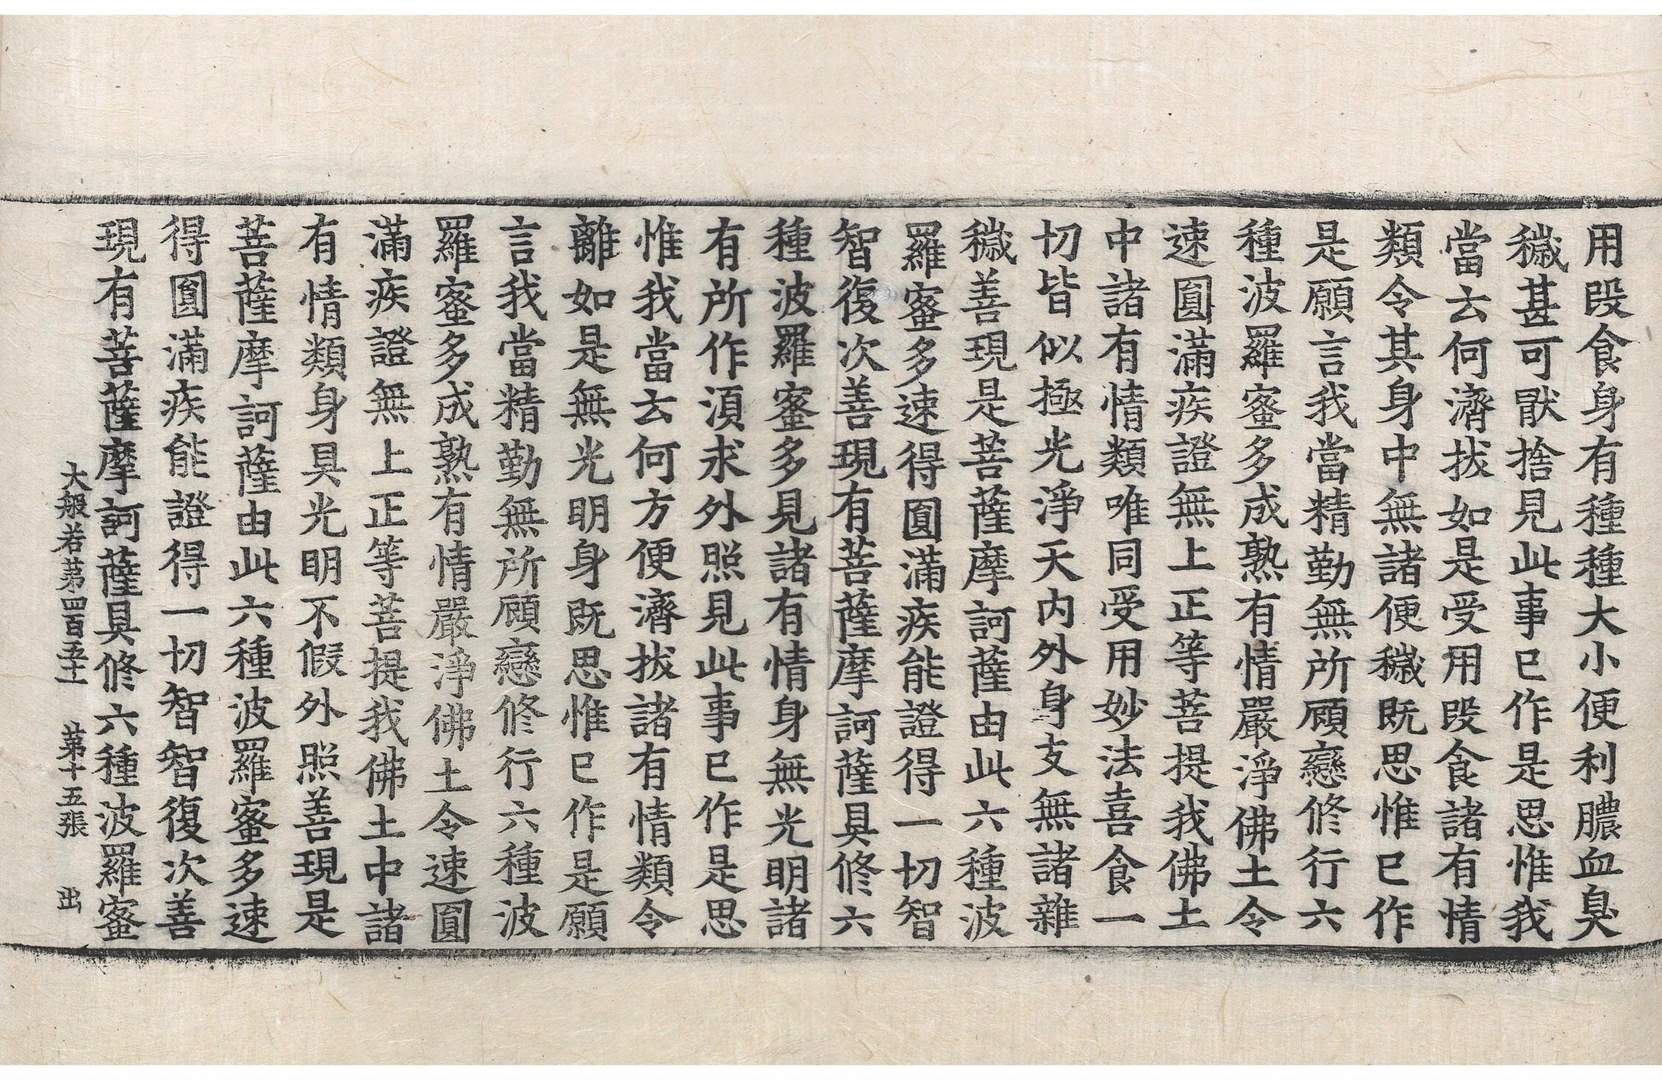 用段食身有種種大小便利膿血臭
穢甚可猒捨見此事已作是思惟我
當云何濟拔如是受用段食諸有情
類令其身中無諸便穢既思惟已作
是願言我當精勤無所顧戀修行六
種波羅蜜多成熟有情嚴淨佛土令
速圓滿疾證無上正等菩提我佛土
中諸有情類唯同受用妙法喜食一
切皆似極光淨天內外身支無諸雜
穢善現是菩薩摩訶薩由此六種波
羅蜜多速得圓滿疾能證得一切智
智復次善現有菩薩摩訶薩具修六
種波羅蜜多見諸有情身無光明諸
有所作須求外照見此事已作是思
惟我當云何方便濟拔諸有情類令
離如是無光明身既思惟已作是願
言我當精勤無所顧戀修行六種波
羅蜜多成熟有情嚴淨佛土令速圓
滿疾證無上正等菩提我佛土中諸
有情類身具光明不假外照善現是
菩薩摩訶薩由此六種波羅蜜多速
得圓滿疾能證得一切智智復次善
現有菩薩摩訶薩具修六種波羅蜜
大般若第四百五十一 第十五張 出